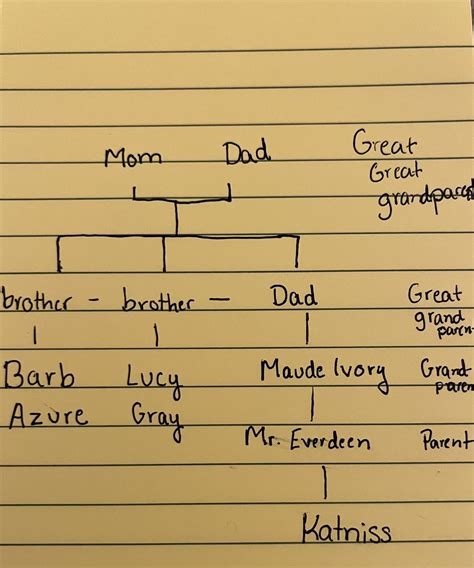 Mom Dad Great
Great
grandparent
brother - brother - Dad Great
grand
parent
Barb Lucy Maude Ivory Grand
parent
Azure Gray
Mr. Everdeen Parent
Katniss